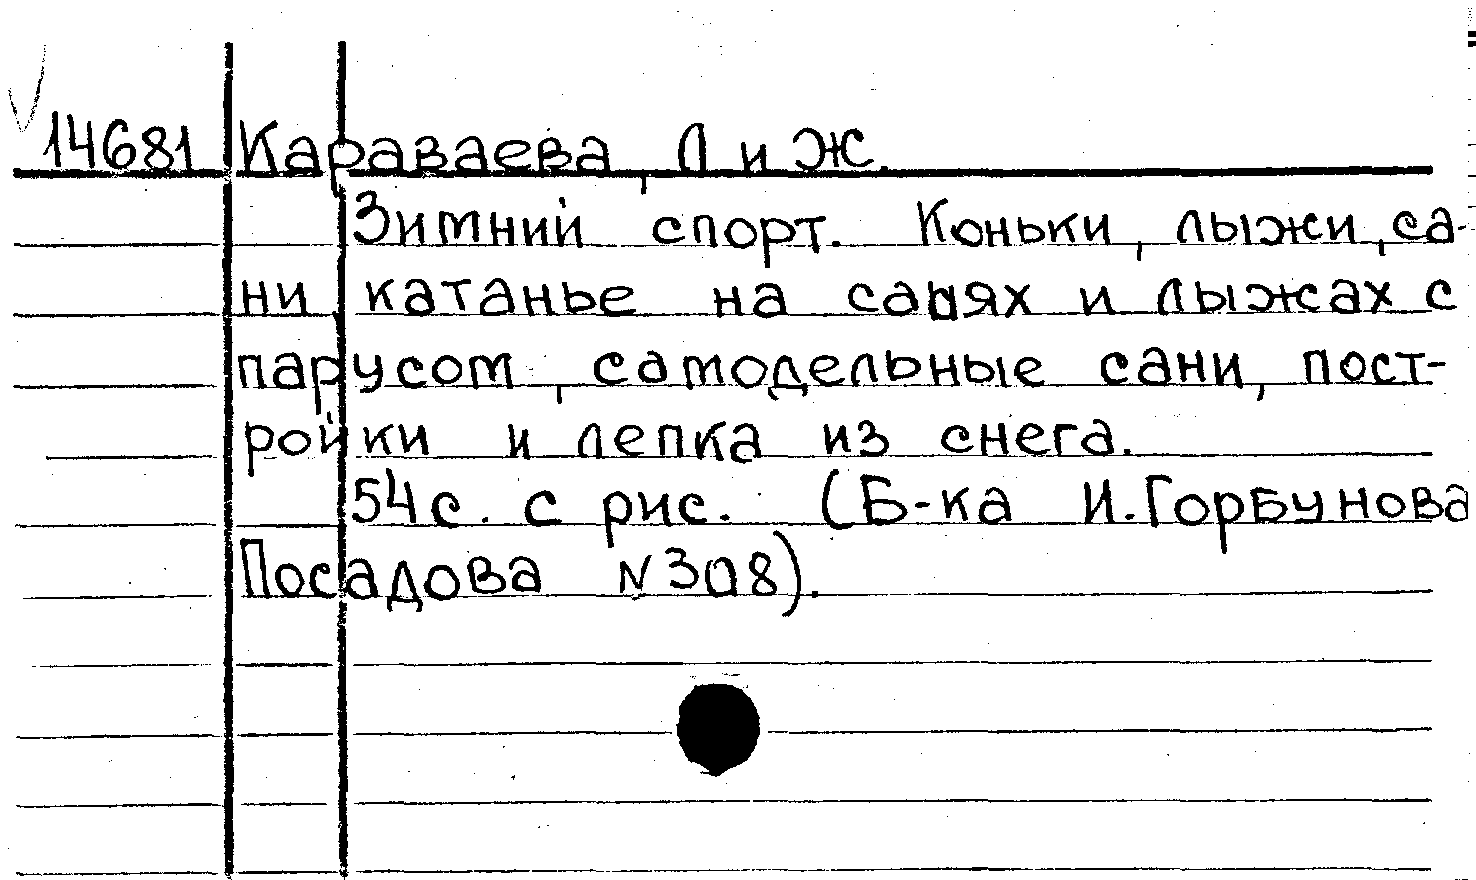 14681 Караваева, Л и Ж.
Зимний спорт. Коньки, лыжи, са-
ни катанье на санях и лыжах с
парусом, самодельные сани, пост-
ройки и лепка из снега.
54с. с рис. (Б-ка И.Горбунова
Посадова N308).